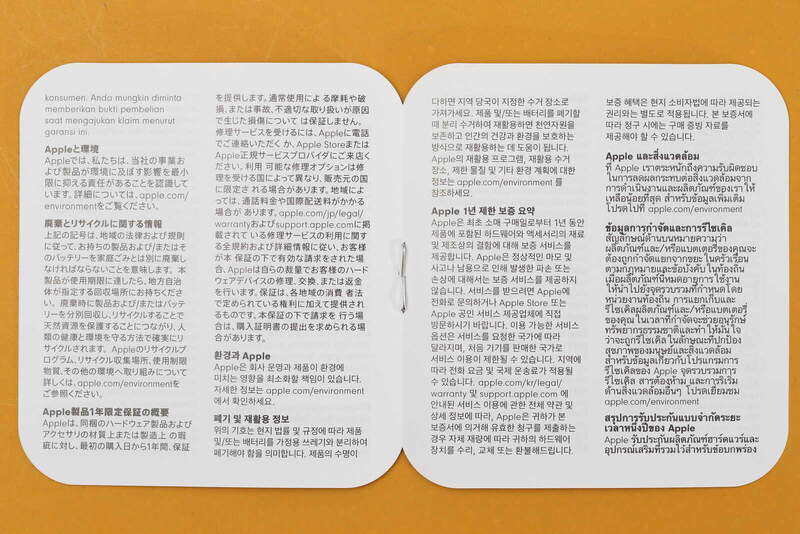 konsumen. Anda mungkin diminta
memberikan bukti pembelian
saat mengajukan klaim menurut
garansi ini.
Appleと環境
Appleでは、私たちは、当社の事業お
よび製品が環境に及ぼす影響を最小
限に抑える責任があることを認識してい
ます。詳細については、apple.com/
environmentをご覧ください。
廃棄とリサイクルに関する情報
上記の記号は、地域の法律および規則
に従って、お持ちの製品および/またはそ
のバッテリーを家庭ごみとは別に廃棄し
なければならないことを意味します。本
製品が使用期限に達したら、地方自治
体が指定する回収場所にお持ちくださ
い。廃棄時に製品および/またはバッテ
リーを分別回収し、リサイクルすることで
天然資源を保護することにつながり、人
類の健康と環境を守る方法で確実にリ
サイクルされます。Appleのリサイクルプ
ログラム、リサイクル収集場所、使用制限
物質、その他の環境へ取り組みについて
詳しくは、apple.com/environmentを
ご参照ください。
Apple製品1年限定保証の概要
Appleは、同梱のハードウェア製品および
アクセサリの材質上または製造上 の瑕
疵に対し、最初の購入日から1年間、保証
を提供します。通常使用によ る摩耗や破
損、または事故、不適切な取り扱いが原因
で生じた損傷について は保証しません。
修理サービスを受けるには、Appleに電話
でご連絡いただく か、Apple Storeまたは
Apple正規サービスプロバイダにご来店く
ださい。利用 可能な修理オプションは修
理を受ける国によって異なり、販売元の国
に限定さ れる場合があります。地域によっ
ては、通話料金や国際配送料がかかる
場合があ ります。apple.com/jp/legal/
warrantyおよびsupport.apple.comに掲
載されて いる修理サービスの利用に関す
る全規約および詳細情報に従い、お客様
が本 保証の下で有効な請求をされた場
合、Appleは自らの裁量でお客様のハード
ウェアデバイスの修理、交換、または返金
を行います。保証は、各地域の消費 者法
で定められている権利に加えて提供され
るものです。本保証の下で請求を行う場合
は、購入証明書の提出を求められる場合
があります。
환경과 Apple
Apple은 회사 운영과 제품이 환경에
미치는 영향을 최소화할 책임이 있습니다.
자세한 정보는 apple.com/environment
에서 확인하세요.
폐기 및 재활용 정보
위의 기호는 현지 법률 및 규정에 따라 제품
및/또는 배터리를 가정용 쓰레기와 분리하여
폐기해야 함을 의미합니다. 제품의 수명이
다하면 지역 당국이 지정한 수거 장소로
가져가세요. 제품 및/또는 배터리를 폐기할
때 분리 수거하여 재활용하면 천연자원을
보존하고 인간의 건강과 환경을 보호하는
방식으로 재활용하는 데 도움이 됩니다.
Apple의 재활용 프로그램, 재활용 수거
장소, 제한 물질 및 기타 환경 계획에 대한
정보는 apple.com/environment 를
참조하세요.
Apple 1년 제한 보증 요약
Apple은 최초 소매 구매일로부터 1년 동안
제품에 포함된 하드웨어와 액세서리의 재료
및 제조상의 결함에 대해 보증 서비스를
제공합니다. Apple은 정상적인 마모 및
사고나 남용으로 인해 발생한 파손 또는
손상에 대해서는 보증 서비스를 제공하지
않습니다. 서비스를 받으려면 Apple에
전화로 문의하거나 Apple Store 또는
Apple 공인 서비스 제공업체에 직접
방문하시기 바랍니다. 이용 가능한 서비스
옵션은 서비스를 요청한 국가에 따라
달라지며, 처음 기기를 판매한 국가로
서비스 이용이 제한될 수 있습니다. 지역에
따라 전화 요금 및 국제 운송료가 적용될
수 있습니다. apple.com/kr/legal/
warranty 및 support.apple.com 에
안내된 서비스 이용에 관한 전체 약관 및
상세 정보에 따라, Apple은 귀하가 본
보증서에 의거해 유효한 청구를 제출하는
경우 자체 재량에 따라 귀하의 하드웨어
장치를 수리, 교체 또는 환불해드립니다.
보증 혜택은 현지 소비자법에 따라 제공되는
권리와는 별도로 적용됩니다. 본 보증서에
따라 청구 시에는 구매 증빙 자료를
제공해야 할 수 있습니다.
Apple และสิ่งแวดล้อม
ที่ Apple เราตระหนักถึงความรับผิดชอบ
ในการลดผลกระทบต่อสิ่งแวดล้อมจาก
การดำเนินงานและผลิตภัณฑ์ของเราให้
เหลือน้อยที่สุด สำหรับข้อมูลเพิ่มเติม
โปรดไปที่ apple.com/environment
ข้อมูลการกำจัดและการรีไซเคิล
สัญลักษณ์ด้านบนหมายความว่า
ผลิตภัณฑ์และ/หรือแบตเตอรี่ของคุณจะ
ต้องถูกกำจัดแยกจากขยะในครัวเรือน
ตามกฎหมายและข้อบังคับในท้องถิ่น
เมื่อผลิตภัณฑ์นี้หมดอายุการใช้งาน
ให้นำไปยังจุดรวบรวมที่กำหนดโดย
หน่วยงานท้องถิ่น การแยกเก็บและ
รีไซเคิลผลิตภัณฑ์และ/หรือแบตเตอรี่
ของคุณในเวลาที่กำจัดจะช่วยอนุรักษ์
ทรัพยากรธรรมชาติและทำให้มั่นใจ
ว่าจะถูกรีไซเคิลในลักษณะที่ปกป้อง
สุขภาพของมนุษย์และสิ่งแวดล้อม
สำหรับข้อมูลเกี่ยวกับโปรแกรมการ
รีไซเคิลของ Apple จุดรวบรวมการ
รีไซเคิล สารต้องห้าม และการริเริ่ม
ด้านสิ่งแวดล้อมอื่นๆ โปรดเยี่ยมชม
apple.com/environment
สรุปการรับประกันแบบจำกัดระยะ
เวลาหนึ่งปีของ Apple
Apple รับประกันผลิตภัณฑ์ฮาร์ดแวร์และ
อุปกรณ์เสริมที่รวมไว้สำหรับข้อบกพร่อง